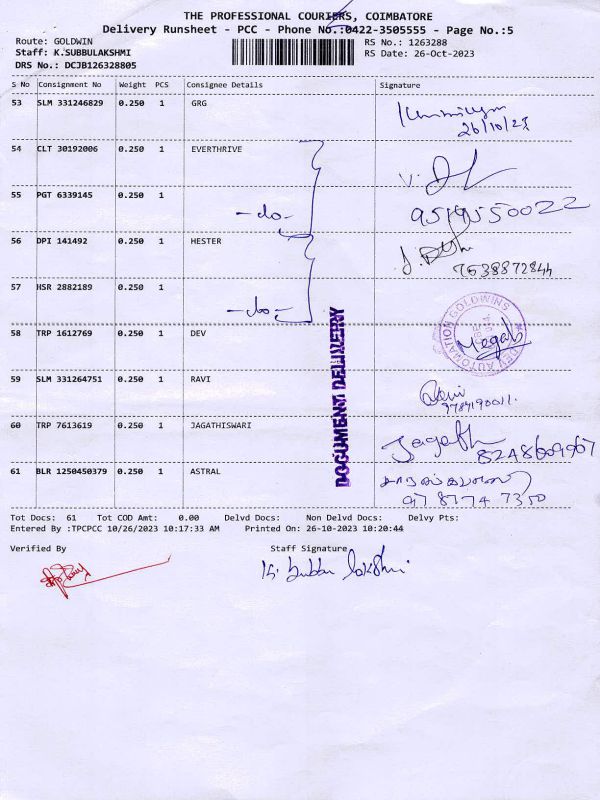 THE PROFESSIONAL COURIERS, COIMBATORE
Delivery Runsheet - PCC - Phone No.:0422-3505555 - Page No.:5
Route: GOLDWIN
RS No.: 1263288
Staff: K.SUBBULAKSHMI
RS Date: 26-Oct-2023
DRS No.: DCJB126328805
S No Consignment No Weight PCS Consignee Details Signature
53 SLM 331246829 0.250 1 GRG
26/10/23
54 CLT 30192006 0.250 1 EVERTHRIVE
55 PGT 6339145 0.250 1 -do-
56 DPI 141492 0.250 1 HESTER
7638872844
57 HSR 2882189 0.250 1 -do-
58 TRP 1612769 0.250 1 DEV
Megala
59 SLM 331264751 0.250 1 RAVI
60 TRP 7613619 0.250 1 JAGATHISWARI
Jagath
61 BLR 1250450379 0.250 1 ASTRAL
DOCUMENT DELIVERY
Tot Docs: 61 Tot COD Amt: 0.00 Delvd Docs: Non Delvd Docs: Delvy Pts:
Entered By :TPCPCC 10/26/2023 10:17:33 AM Printed On: 26-10-2023 10:20:44
Verified By
Staff Signature
K. Subbu lakshmi